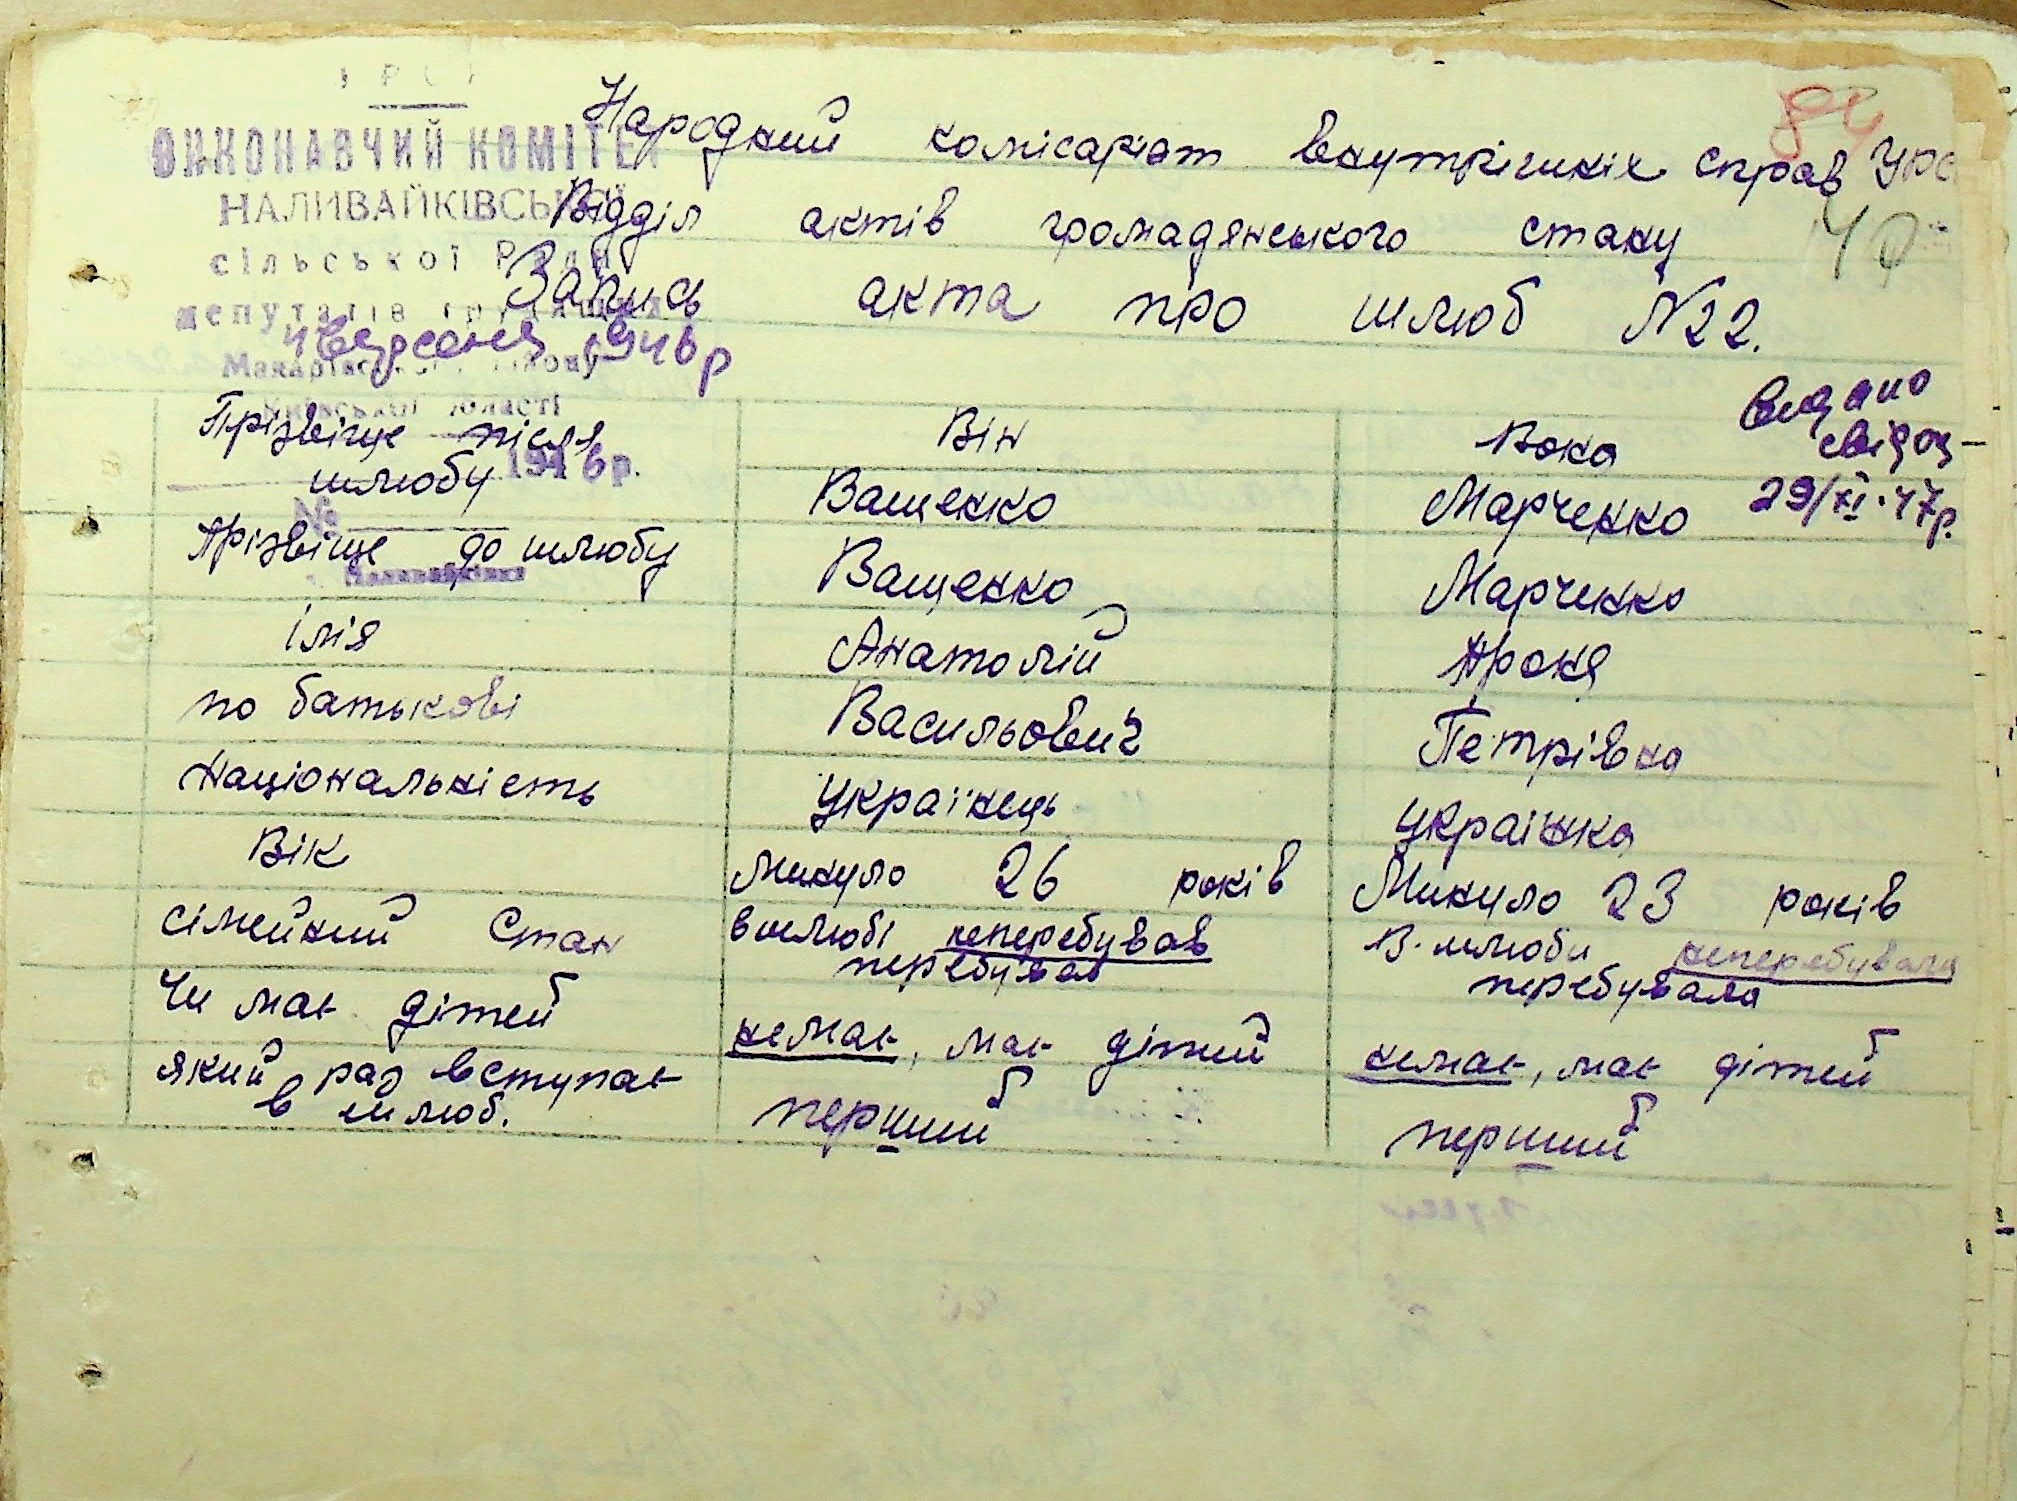 УРСР
ВИКОНАВЧИЙ КОМІТЕТ
НАЛИВАЙКІВСЬКОЇ
сільської Ради
депутатів трудящих
Макарівського району
Київської області
1946 р.
№
Народний комісаріат внутрішніх справ УРС
Відділ актів громадянського стану
Запись акта про шлюб №22.
4 вересня 1946 р
84
40
видано
свідоц-
29/XI.47р.
Прізвіще після шлюбу Він Вона
Ващенко Марченко
Прізвіще до шлюбу Ващенко Марченко
імія Анатолій Проня
по батькові Васильович Петрівна
Національність Українець Українка
Вік минуло 26 років Минуло 23 років
сімейний Стан в шлюбі неперебував В шлюби неперебувала
перебував перебувала
Чи має дітей немає, має дітей немає, має дітей
який раз вступає перший перший
в шлюб.